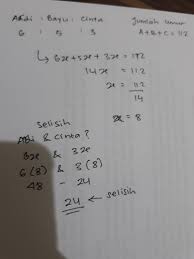 Abdi : Bayu : Cinta Jumlah Umur
6 : 5 : 3 A+B+C = 112
↳ 6x+5x+3x = 112
14x = 112
x = 112
14
x = 8
Selisih
Abdi & Cinta?
6x & 3x
6(8) & 3(8)
48 - 24
24 ← selisih